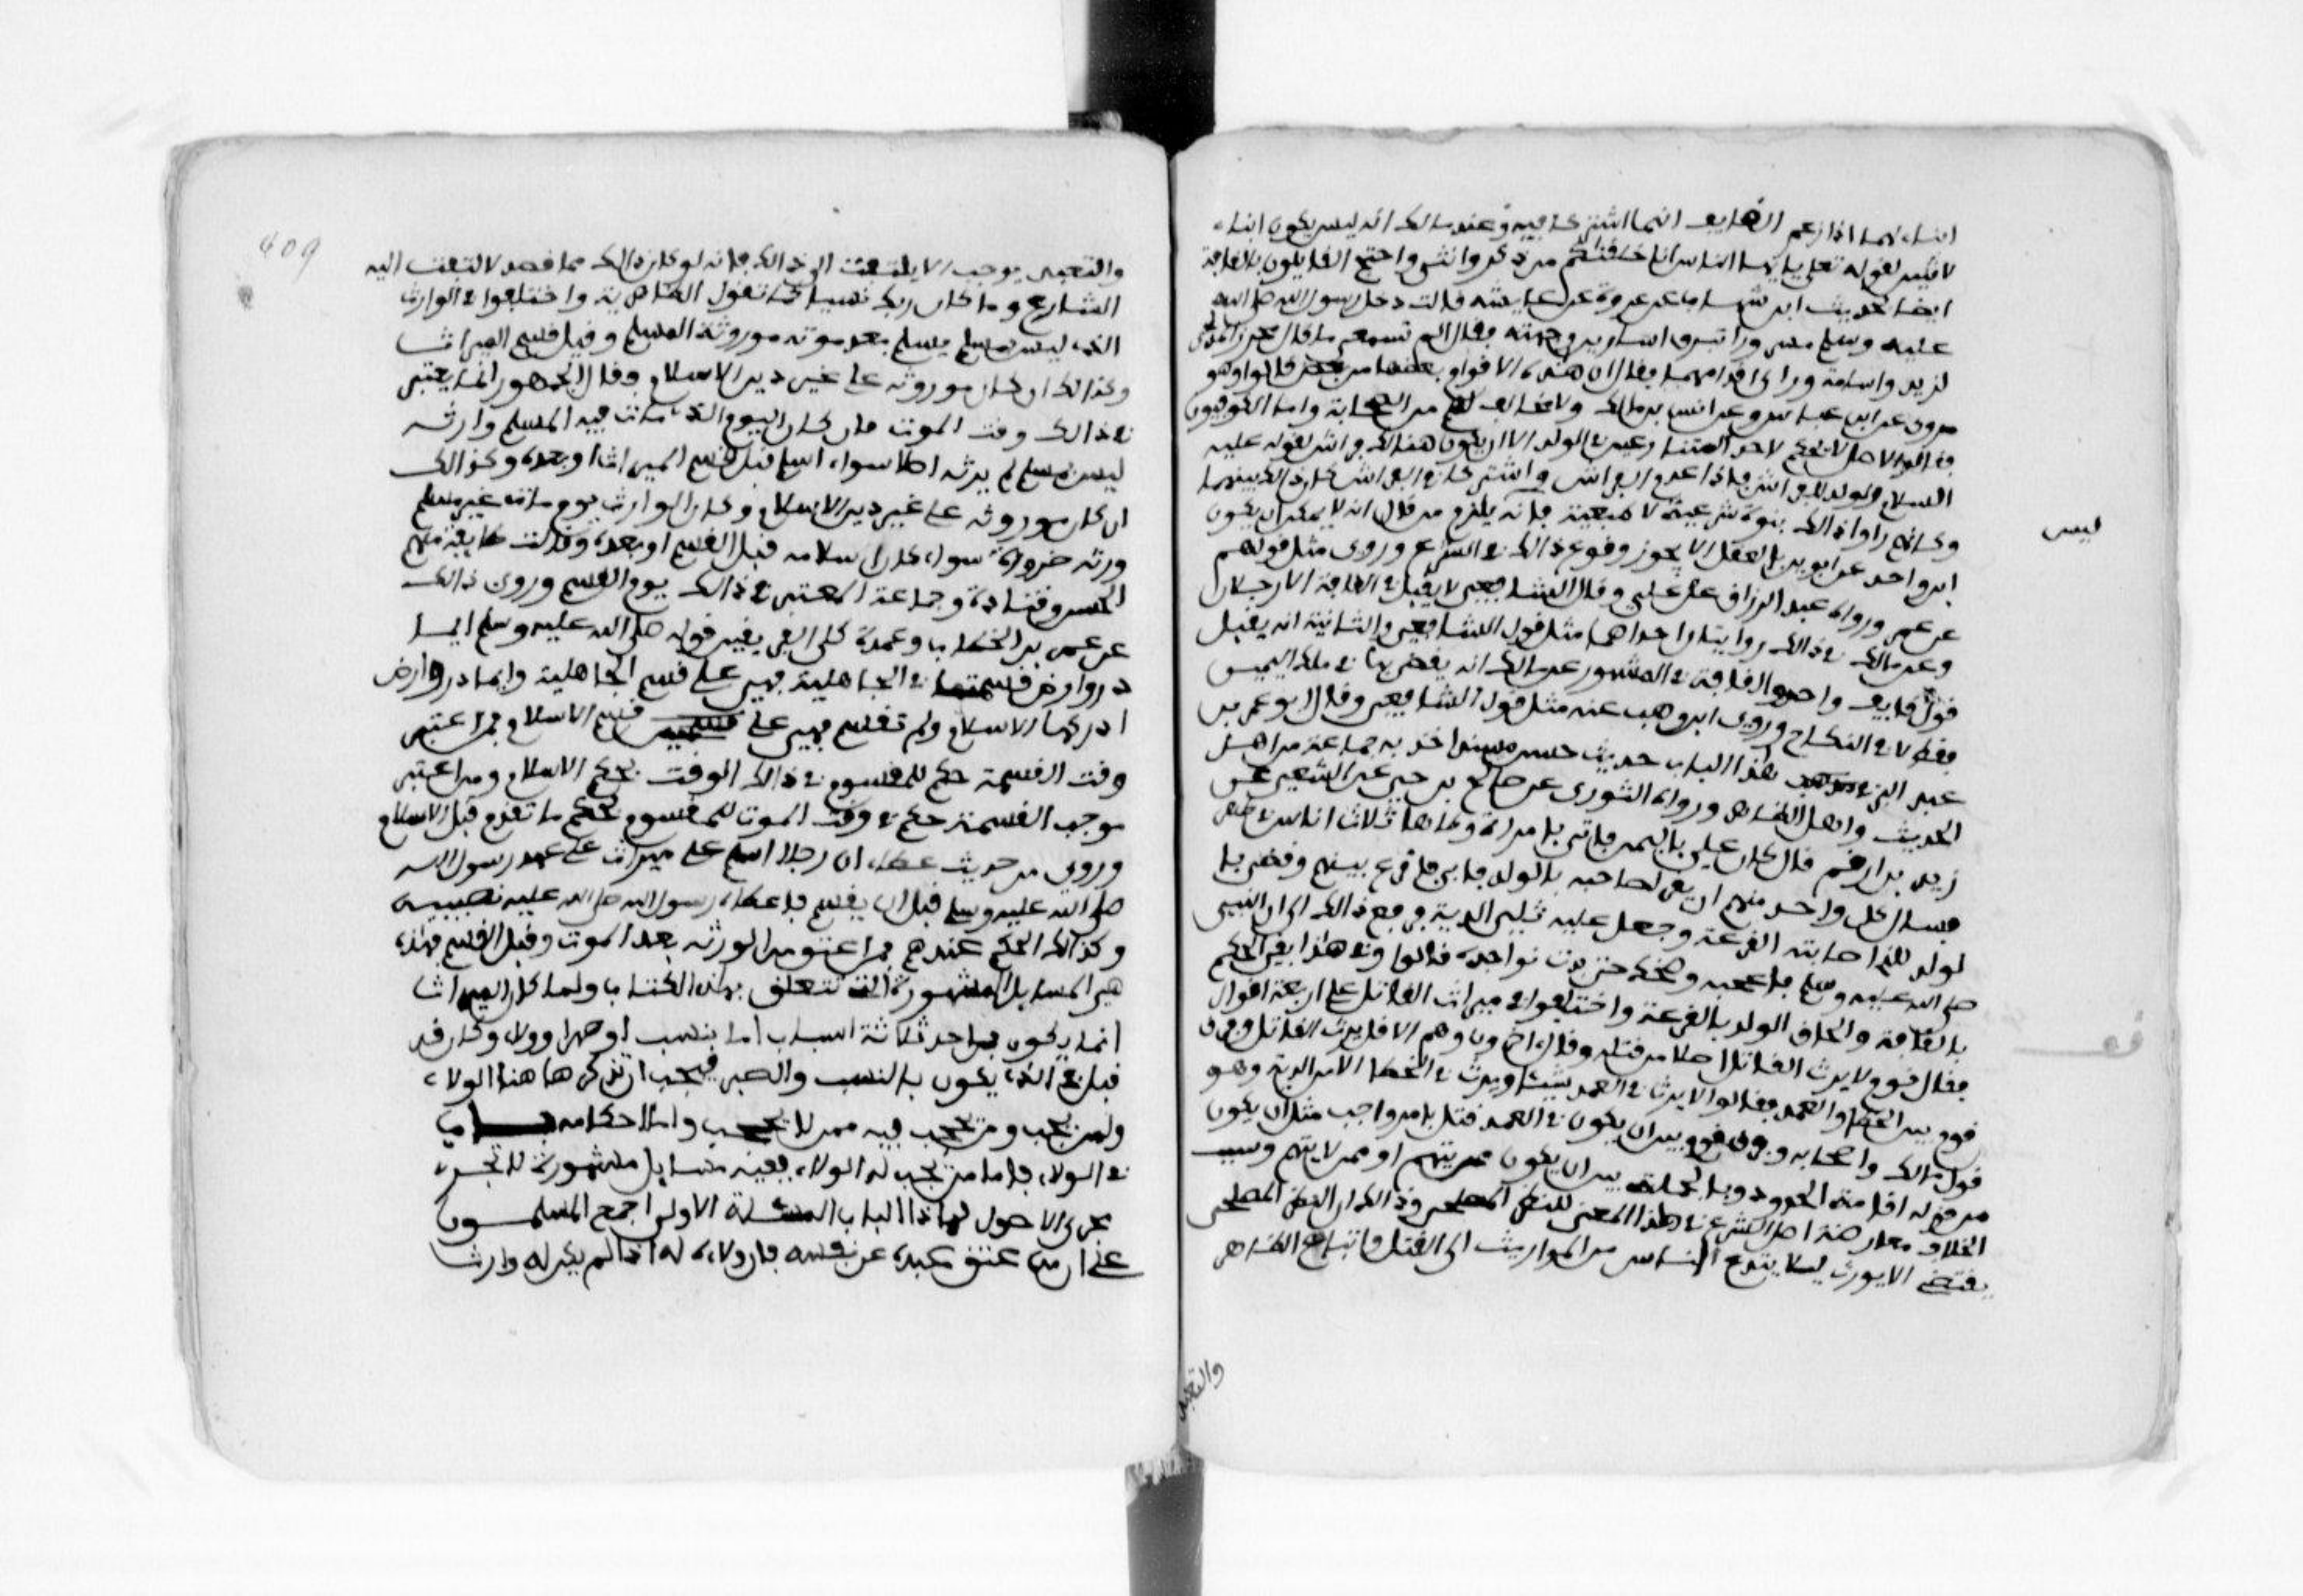 ابناء لهما اذا زعم القايف انهما اشتركا فيه وعند مالك انه ليس يكون ابنا
لاثنين لقوله تعلى يايها الناس انا خلقناكم من ذكر وانثى واحتج القايلون بالقافة
ايضا بحديث ابن شهاب عن عروة عن عايشة قالت دخل رسول الله صلى الله
عليه وسلم مسرورا تبرق اسارير وجهه فقال الم تسمعي ما قال محرز المدلجي
لزيد واسامة وراى اقدامهما فقال ان هذه الاقدام بعضها من بعض قالوا وهو
مروي عن ابن عباس وعن انس بن مالك ولا مخالف لهم من الصحابة واما الكوفيون
فقالوا الاصل لا يحكم لاحد المتنازعين في الولد الا ان يكون هنالك فراش لقوله عليه
السلام الولد للفراش فاذا عدم الفراش او اشتركا في الفراش كان ذلك بينهما
وكانهم راوا ذالك بنوة شرعية لا طبعية فانه يلزم من قال انه لا يمكن ان يكون
ليس
ابن واحد عن ابوين بالعقل الا يجوز وقوع ذالك في الشرع وروى مثل قولهم
عن عمر ورواه عبد الرزاق عن علي وقال الشافعي لا يقبل في القافة الا رجلان
وعن مالك في ذالك روايتان احداهما مثل قول الشافعي والثانية انه يقبل
قول قايف واحد والقافة في المشهور عن مالك انه يقضى بها في ملك اليمين
فقط لا في النكاح وروى ابن وهب عنه مثل قول الشافعي وقال ابو عمر بن
عبد البر في هذا الباب حديث حسن مسند اخذ به جماعة من اهل
الحديث واهل الظاهر ورواه الثوري عن صالح بن حي عن الشعبي عن
زيد بن ارقم قال كان علي باليمن فاتي بامراة وطيها ثلاث اناس في طهر
فسال كل واحد منهم ان يقر لصاحبه بالولد فابى فاقرع بينهم وقضى بالـ
ـولد للذي اصابته القرعة وجعل عليه ثلثي الدية فرفع ذالك الى النبي
صلى الله عليه وسلم فاعجبه وضحك حتى بدت نواجده قالوا وفي هذا انفي الحكم
بالقافة والحاق الولد بالقرعة واختلفوا في ميراث القاتل على اربعة اقوال
فقال قوم لا يرث القاتل اصلا من قتله وقال اخرون وهم الاقل يرث القاتل وفرق
قوم بين الخطا والعمد فقالوا لا يرث في العمد شيئا ويرث في الخطا الا من الدية وهو
قول مالك واصحابه وفرق قوم بين ان يكون في العمد قتل بامر واجب مثل ان يكون
من له اقامة الحدود وبالجملة بين ان يكون ممن يتهم او ممن لا يتهم وسبب
الخلاف معارضة اصل الشرع في هذا المعنى للنظر المصلحي وذالك ان النظر المصلحي
يقتضي الا يورث ليلا يتدرع الناس من المواريث الى القتل واتباع الظاهر
والتعبد
409
والتعبد يوجب الا يلتفت الى ذالك فانه لو كان ذالك مما قصد لالتفت اليه
الشارع وما كان ربك نسيا كما تقول الظاهرية واختلفوا في الوارث
الذي ليس بمسلم يسلم بعد موت موروثه المسلم وقبل قسم الميراث
وكذالك ان كان موروثه على غير دين الاسلام فقال الجمهور انما يعتبر
في ذالك وقت الموت فان كان اليوم الذي مات فيه المسلم وارثه
ليس بمسلم لم يرثه اصلا سواء اسلم قبل قسم الميراث او بعده وكذالك
ان كان موروثه على غير دين الاسلام وكان الوارث يوم مات غير مسلم
ورثه ضرورة سواء كان اسلامه قبل القسم او بعده وقالت طايفة منهم
الحسن وقتادة وجماعة المعتبر في ذالك يوم القسم وروي ذالك
عن عمر بن الخطاب وعمدة كلى الفريقين قوله صلى الله عليه وسلم ايما
دار او ارض قسمت في الجاهلية فهي على قسم الجاهلية وايما دار او ارض
ادركها الاسلام ولم تقسم فهي على قسم الاسلام فمن اعتبر
وقت القسمة حكم للمقسوم في ذالك الوقت بحكم الاسلام ومن اعتبر
موجب القسمة حكم في وقت الموت للمقسوم بحكم ما تقدم قبل الاسلام
وروي من حديث عطاء ان رجلا اسلم على ميراث على عهد رسول الله
صلى الله عليه وسلم قبل ان يقسم فاعطاه رسول الله صلى الله عليه نصيبه
وكذالك الحكم عندهم فمن اعتق من الورثة بعد الموت وقبل القسم فهذه
هي المسايل المشهورة التي تتعلق بهذا الكتاب ولما كان الميراث
انما يكون باحد ثلاثة اسباب اما بنسب او صهر او ولاء وكان قد
قيل في الذي يكون بالنسب والصهر فيجب ان نذكر ها هنا الولاء
ولمن يجب ومن يجب فيه ممن لا يجب وما احكامه باب
في الولاء فاما من يجب له الولاء ففيه مسايل مشهورة تجري
مجرى الاصول لهاذا الباب المسئلة الاولى اجمع المسلمون
على ان من عتق عبده عن نفسه فان ولاءه له اذا لم يكن له وارث